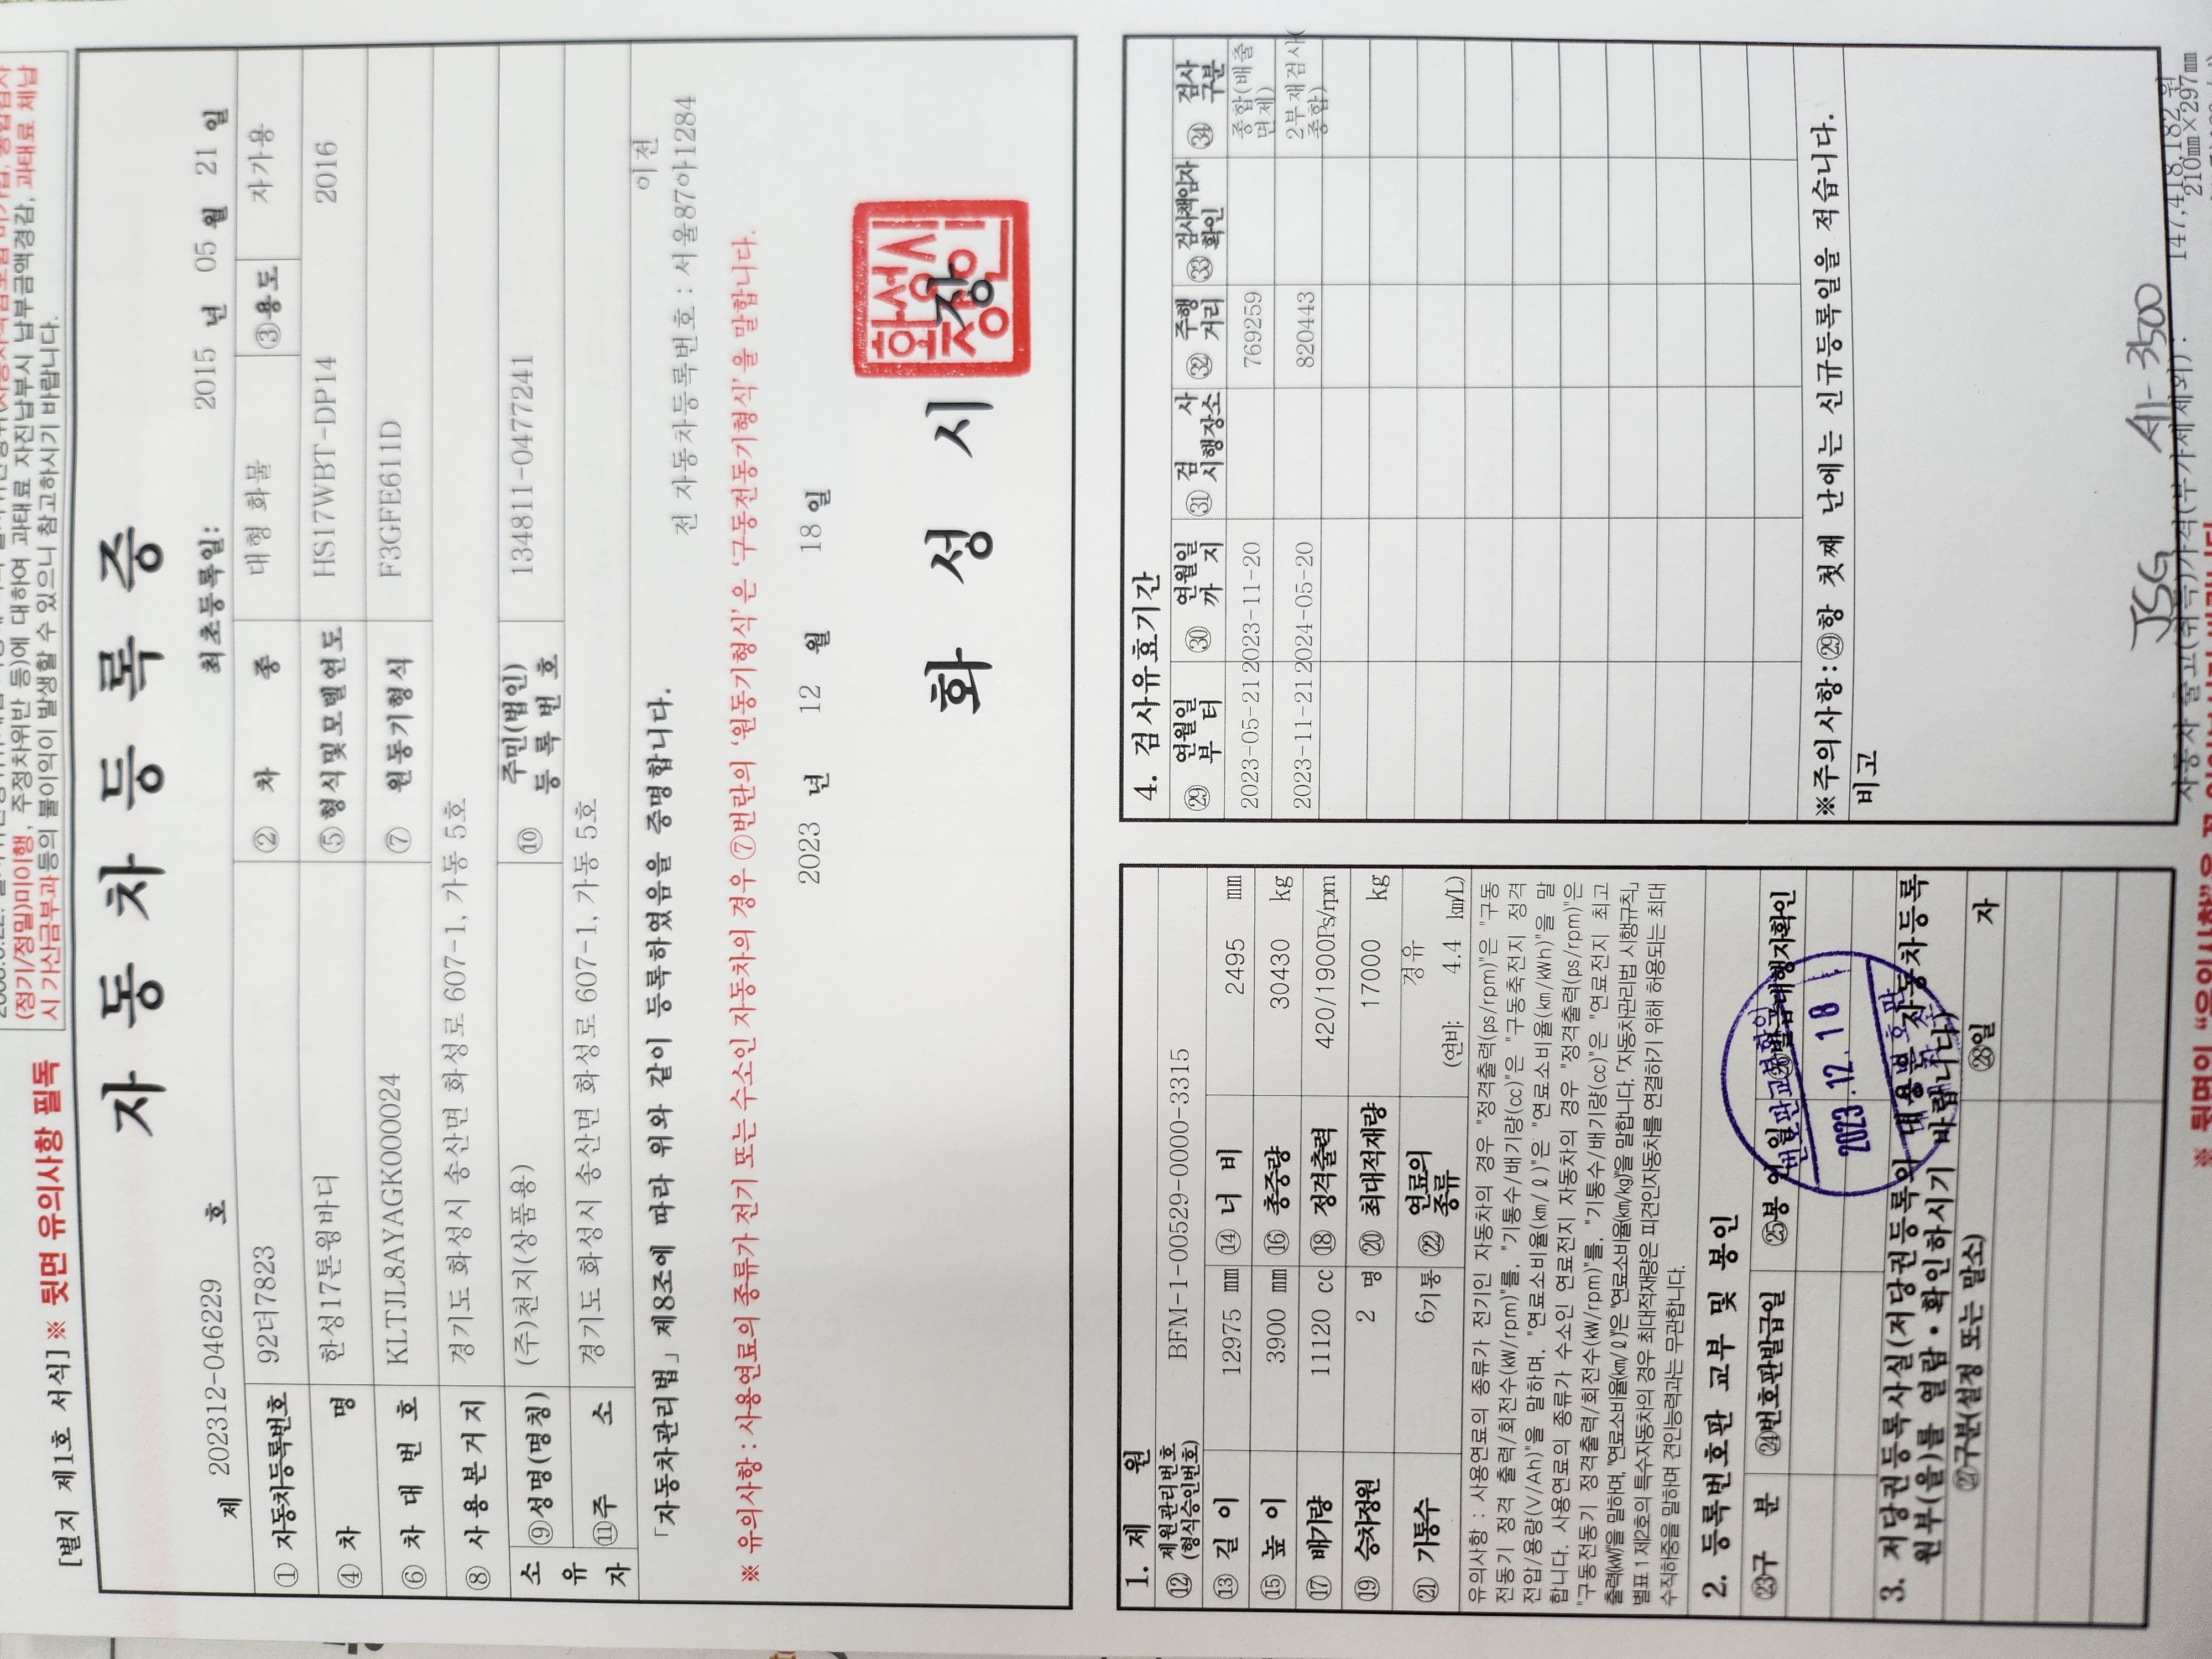 [별지 제1호 서식] ※ 뒷면 유의사항 필독
(정기/정밀)미이행, 주정차위반 등)에 대하여 과태료 자진납부시 납부금액경감, 과태료 체납
시 가산금부과 등의 불이익이 발생할 수 있으니 참고하시기 바랍니다.
자동차등록증
제 202312-046229 호 최초등록일: 2015 년 05 월 21 일
① 자동차등록번호 92더7823 ② 차 종 대형 화물 ③용도 자가용
④ 차 명 한성17톤윙바디 ⑤형식및모델연도 HS17WBT-DP14 2016
⑥ 차 대 번 호 KLTJL8AYAGK000024 ⑦ 원동기형식 F3GFE611D
⑧ 사 용 본 거 지 경기도 화성시 송산면 화성로 607-1, 가동 5호
소유자 ⑨성명(명칭) (주)천지(상품용) ⑩ 주민(법인)등록번호 134811-0477241
⑪주 소 경기도 화성시 송산면 화성로 607-1, 가동 5호
「자동차관리법」 제8조에 따라 위와 같이 등록하였음을 증명합니다. 이전
전 자동차등록번호 : 서울87아1284
※ 유의사항 : 사용연료의 종류가 전기 또는 수소인 자동차의 경우 ⑦번란의 '원동기형식'은 '구동전동기형식'을 말합니다.
2023 년 12 월 18 일
화 성 시 장
화성시장인
1. 제 원
⑫ 제원관리번호(형식승인번호) BFM-1-00529-0000-3315
⑬ 길 이 12975 mm ⑭ 너 비 2495 mm
⑮ 높 이 3900 mm ⑯ 총중량 30430 kg
⑰ 배기량 11120 cc ⑱ 정격출력 420/1900Ps/rpm
⑲ 승차정원 2 명 ⑳ 최대적재량 17000 kg
㉑ 기통수 6기통 ㉒ 연료의 종류 경유
(연비: 4.4 km/L)
유의사항 : 사용연료의 종류가 전기인 자동차의 경우 "정격출력(ps/rpm)"은 "구동
전동기 정격 출력/회전수(kW/rpm)"를, "기통수/배기량(cc)"은 "구동축전지 정격
전압/용량(V/Ah)"을 말하며, "연료소비율(㎞/ℓ)"은 "연료소비율(km/kWh)"을 말
합니다. 사용연료의 종류가 수소인 연료전지 자동차의 경우 "정격출력(ps/rpm)"은
"구동전동기 정격출력/회전수(kW/rpm)"를, "기통수/배기량(cc)"은 "연료전지 최고
출력(kW)"을 말하며, "연료소비율(㎞/ℓ)"은 "연료소비율(㎞/kg)"을 말합니다. 「자동차관리법 시행규칙」
별표 1 제2호의 특수자동차의 경우 최대적재량은 피견인자동차를 연결하기 위해 허용되는 최대
수직하중을 말하며 견인능력과는 무관합니다.
2. 등록번호판 교부 및 봉인
㉓구 분 ㉔번호판발급일 ㉕봉 인 일 ㉖발급대행자확인
2023.12.18
3. 저당권등록사실(저당권등록의 내용은 자동차등록
원부(을)를 열람・확인하시기 바랍니다)
㉗구분(설정 또는 말소) ㉘일 자
4. 검사유효기간
㉙ 연월일부터 ㉚ 연월일까지 ㉛ 검 사 시행장소 ㉜ 주행거리 ㉝ 검사책임자확인 ㉞ 검사구분
2023-05-21 2023-11-20 769259 종합(배출면제)
2023-11-21 2024-05-20 820443 2부재검사(종합)
※주의사항:㉙항 첫째 난에는 신규등록일을 적습니다.
비고
JSG 세-3500
자동차 출고(취득)가격(부가세제외) : 147,418,182 원
210㎜×297㎜